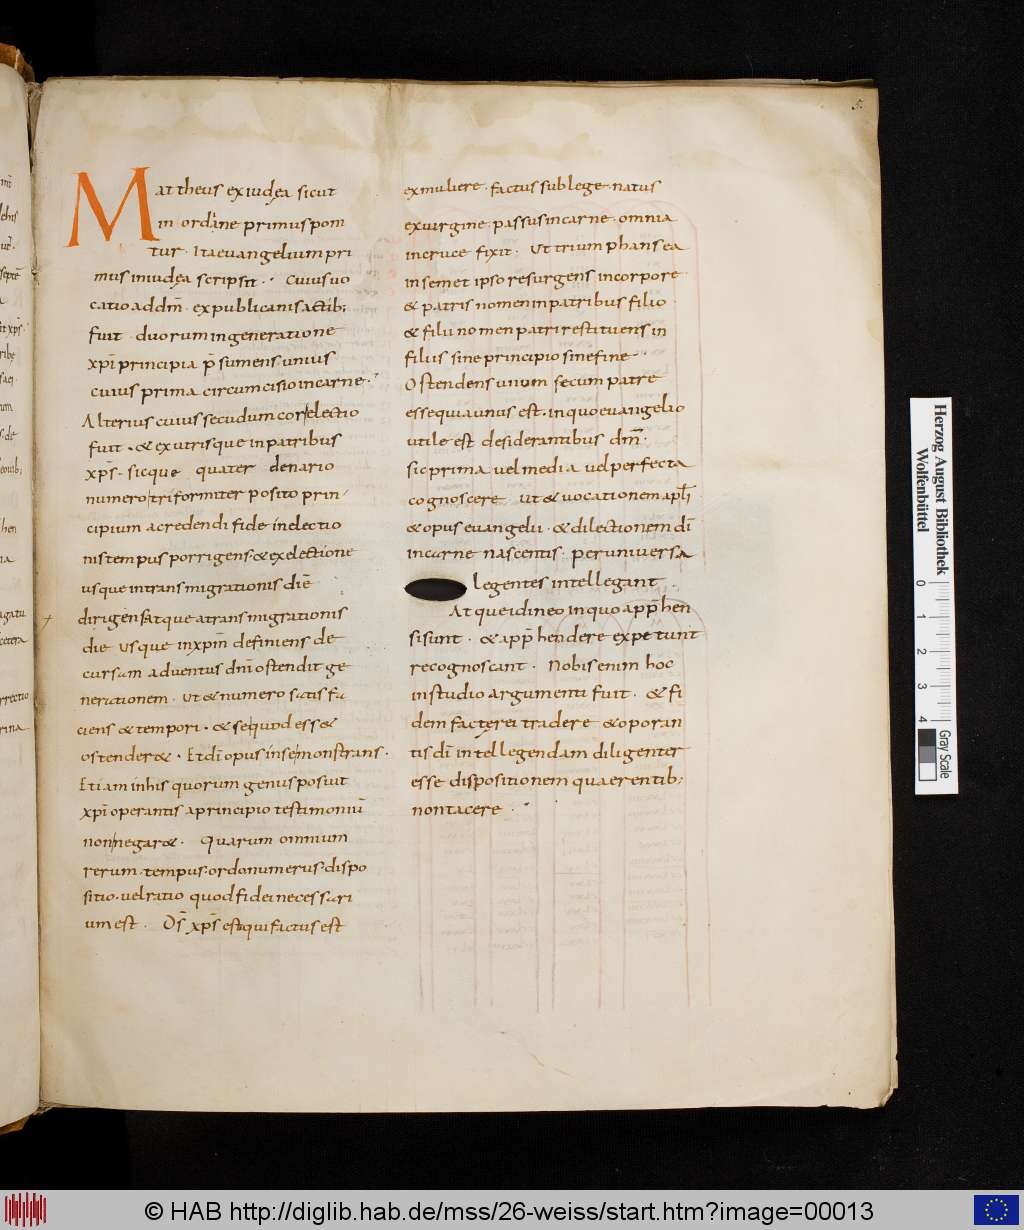 5.
Mattheus exiudęa sicut
in ordine primus pom
tur. Ita euangelium pri
mus iniudęa scripsit. Cuiusuo
catio addm̄ expublicanis actib;
fuit duorum ingeneratione
xp̄i principia p̄sumens unius
cuius prima circumcisio incarne.
Alterius cuius secudum cor electio
fuit. & exutrisque inpatribus
xp̄s. sicque quater denario
numero triformiter posito prin
cipium acredendi fide inelectio
nis tempus porrigens. & exelectione
usque intransmigrationis diē
dirigens atque atransmigrationis
die usque inxp̄m definiens de
cursam aduentus dn̄i ostendit ge
nerationem. ut & numero satisfa
ciens & tempori. & se quod ess&
ostender&. Et dī opus inse monstrans.
Etiam inhis quorum genus posuit
xp̄i operantis aprincipio testimoniū
non negar&. Quarum omnium
rerum. tempus. ordo numerus. dispo
sitio. uel ratio quod fidei necessari
um est. Ds̄ xp̄s est qui factus est
exmuliere. factus sub lege. natus
exuirgine. passus incarne. omnia
incruce fixit. Ut triumphans ea
insemet ipso resurgens incorpore
& patris nomen inpatribus filio
& filii nomen patri restituens in
filiis sine principio sine fine
Ostendens unum secum patre
esse quia unus est. inquo euangelio
utile est desiderantibus dm̄.
sic prima uel media uel perfecta
cognoscere ut & uocationem apl̄i
& opus euangelii. & dilectionem dī
incarne nascentis. per uniuersa
legentes intellegant.
Atque id ineo inquo app̄hen
si sunt. & app̄hendere expetunt
recognoscant. Nobis enim hoc
instudio argumenti fuit. & fi
dem factę rei tradere & operan
tis dī intellegendam diligenter
esse dispositionem quaerentib;
non tacere.
Herzog August Bibliothek
Wolfenbüttel
0 1 2 3 4
Gray Scale
© HAB http://diglib.hab.de/mss/26-weiss/start.htm?image=00013